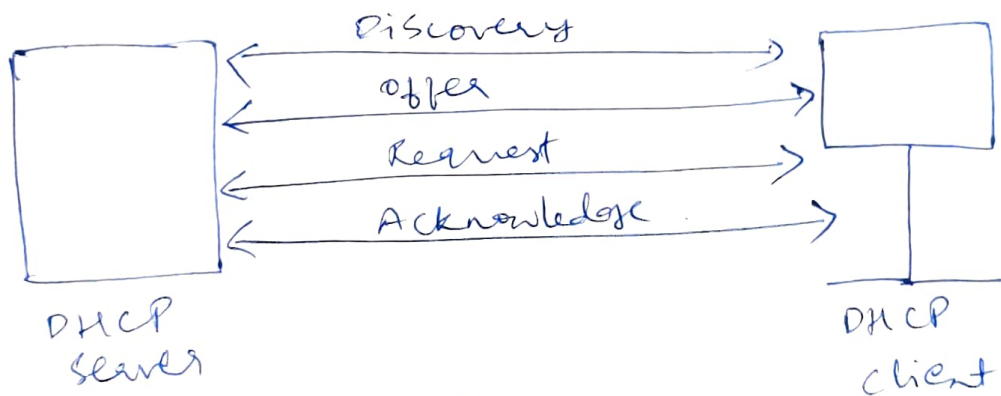 Discovery
Offer
Request
Acknowledge
DHCP
Server
DHCP
Client